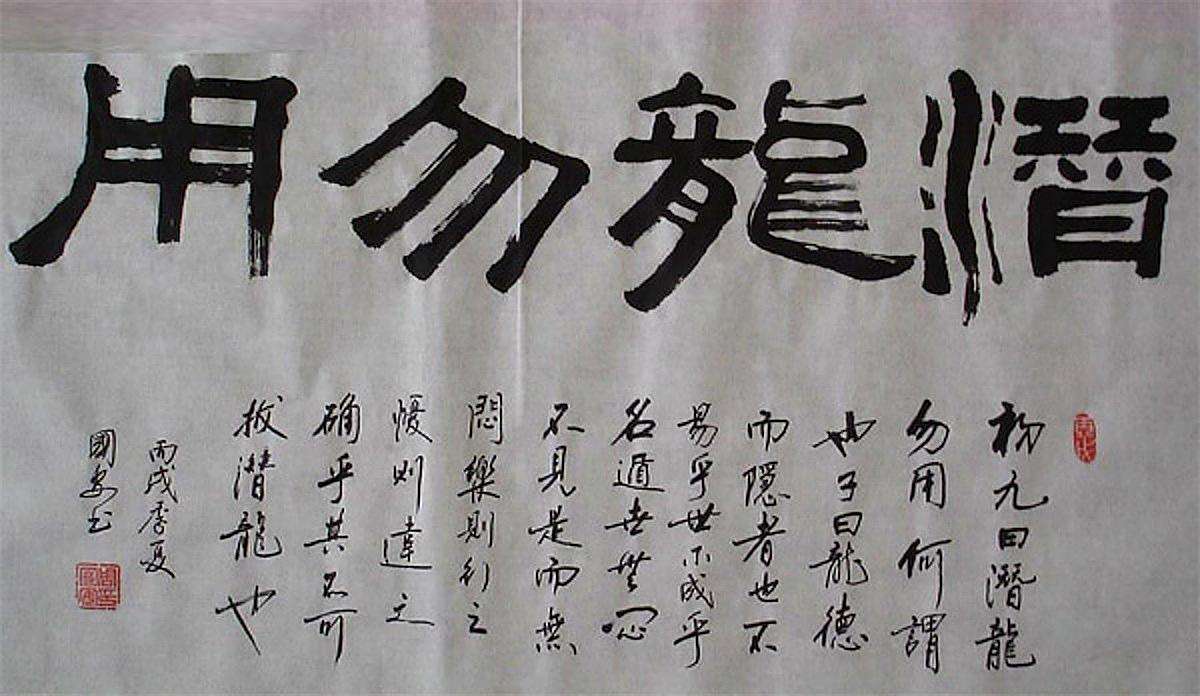 潛龍勿用
初九曰潛龍
勿用何謂
也子曰龍德
而隱者也不
易乎世不成乎
名遁世無悶
不見是而無
悶樂則行之
懮则違之
确乎其不可
拔潜龍也
丙戌季夏
國安书